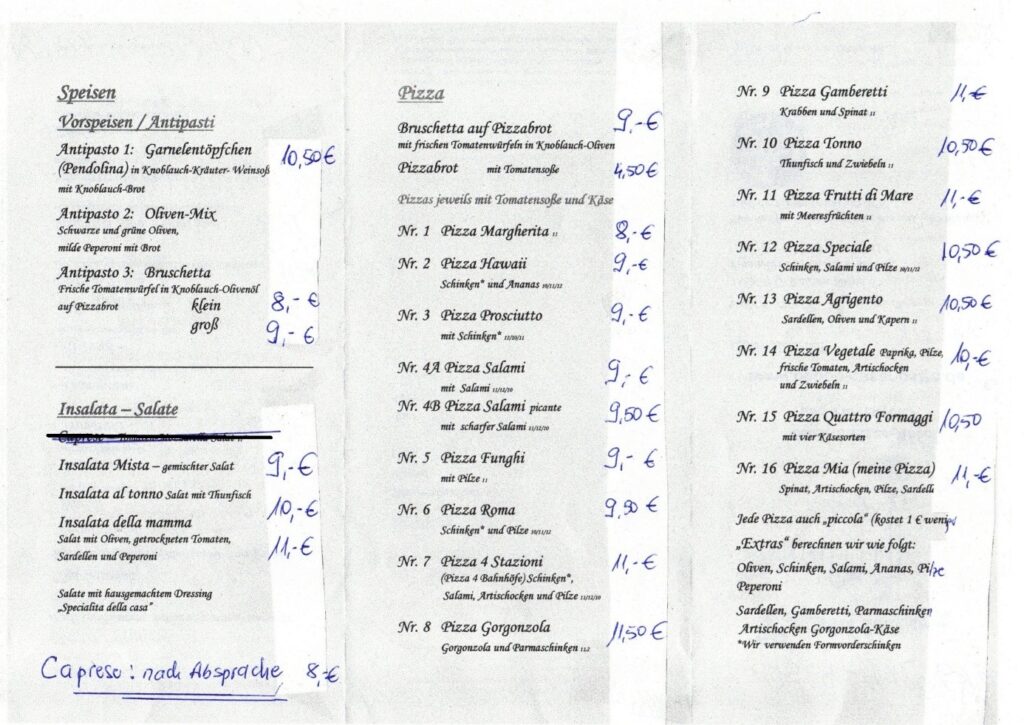 Speisen
Vorspeisen / Antipasti
Antipasto 1: Garnelentöpfchen 10,50 €
(Pendolina) in Knoblauch-Kräuter- Weinsoß
mit Knoblauch-Brot
Antipasto 2: Oliven-Mix
Schwarze und grüne Oliven,
milde Peperoni mit Brot
Antipasto 3: Bruschetta
Frische Tomatenwürfel in Knoblauch-Olivenöl
auf Pizzabrot klein 8,- €
groß 9,- €
Insalata – Salate
Caprese – Tomaten-Mozzarella Salat 11
Insalata Mista – gemischter Salat 9,-€
Insalata al tonno Salat mit Thunfisch 10,-€
Insalata della mamma 11,-€
Salat mit Oliven, getrockneten Tomaten,
Sardellen und Peperoni
Salate mit hausgemachtem Dressing
„Specialita della casa“
Caprese : nach Absprache 8,-€
Pizza
Bruschetta auf Pizzabrot 9,-€
mit frischen Tomatenwürfeln in Knoblauch-Oliven
Pizzabrot mit Tomatensoße 4,50€
Pizzas jeweils mit Tomatensoße und Käse
Nr. 1 Pizza Margherita 11 8,-€
Nr. 2 Pizza Hawaii 9,-€
Schinken* und Ananas 10/11/12
Nr. 3 Pizza Prosciutto 9,-€
mit Schinken* 12/10/11
Nr. 4A Pizza Salami 9,- €
mit Salami 11/12/10
Nr. 4B Pizza Salami picante 9,50 €
mit scharfer Salami 11/12/10
Nr. 5 Pizza Funghi 9,- €
mit Pilze 11
Nr. 6 Pizza Roma 9,50 €
Schinken* und Pilze 10/11/12
Nr. 7 Pizza 4 Stazioni 11,-€
(Pizza 4 Bahnhöfe) Schinken*,
Salami, Artischocken und Pilze 11/12/10
Nr. 8 Pizza Gorgonzola 11,50€
Gorgonzola und Parmaschinken 11.2
Nr. 9 Pizza Gamberetti 11,-€
Krabben und Spinat 11
Nr. 10 Pizza Tonno 10,50€
Thunfisch und Zwiebeln 11
Nr. 11 Pizza Frutti di Mare 11,-€
mit Meeresfrüchten 11
Nr. 12 Pizza Speciale 10,50€
Schinken, Salami und Pilze 10/11/12
Nr. 13 Pizza Agrigento 10,50€
Sardellen, Oliven und Kapern 11
Nr. 14 Pizza Vegetale Paprika, Pilze, 10,-€
frische Tomaten, Artischocken
und Zwiebeln 11
Nr. 15 Pizza Quattro Formaggi 10,50
mit vier Käsesorten
Nr. 16 Pizza Mia (meine Pizza) 11,-€
Spinat, Artischocken, Pilze, Sardell
Jede Pizza auch „piccola“ (kostet 1 €
„Extras“ berechnen wir wie folgt:
Oliven, Schinken, Salami, Ananas, Pilze
Peperoni
Sardellen, Gamberetti, Parmaschinken
Artischocken Gorgonzola-Käse
*Wir verwenden Formvorderschinken